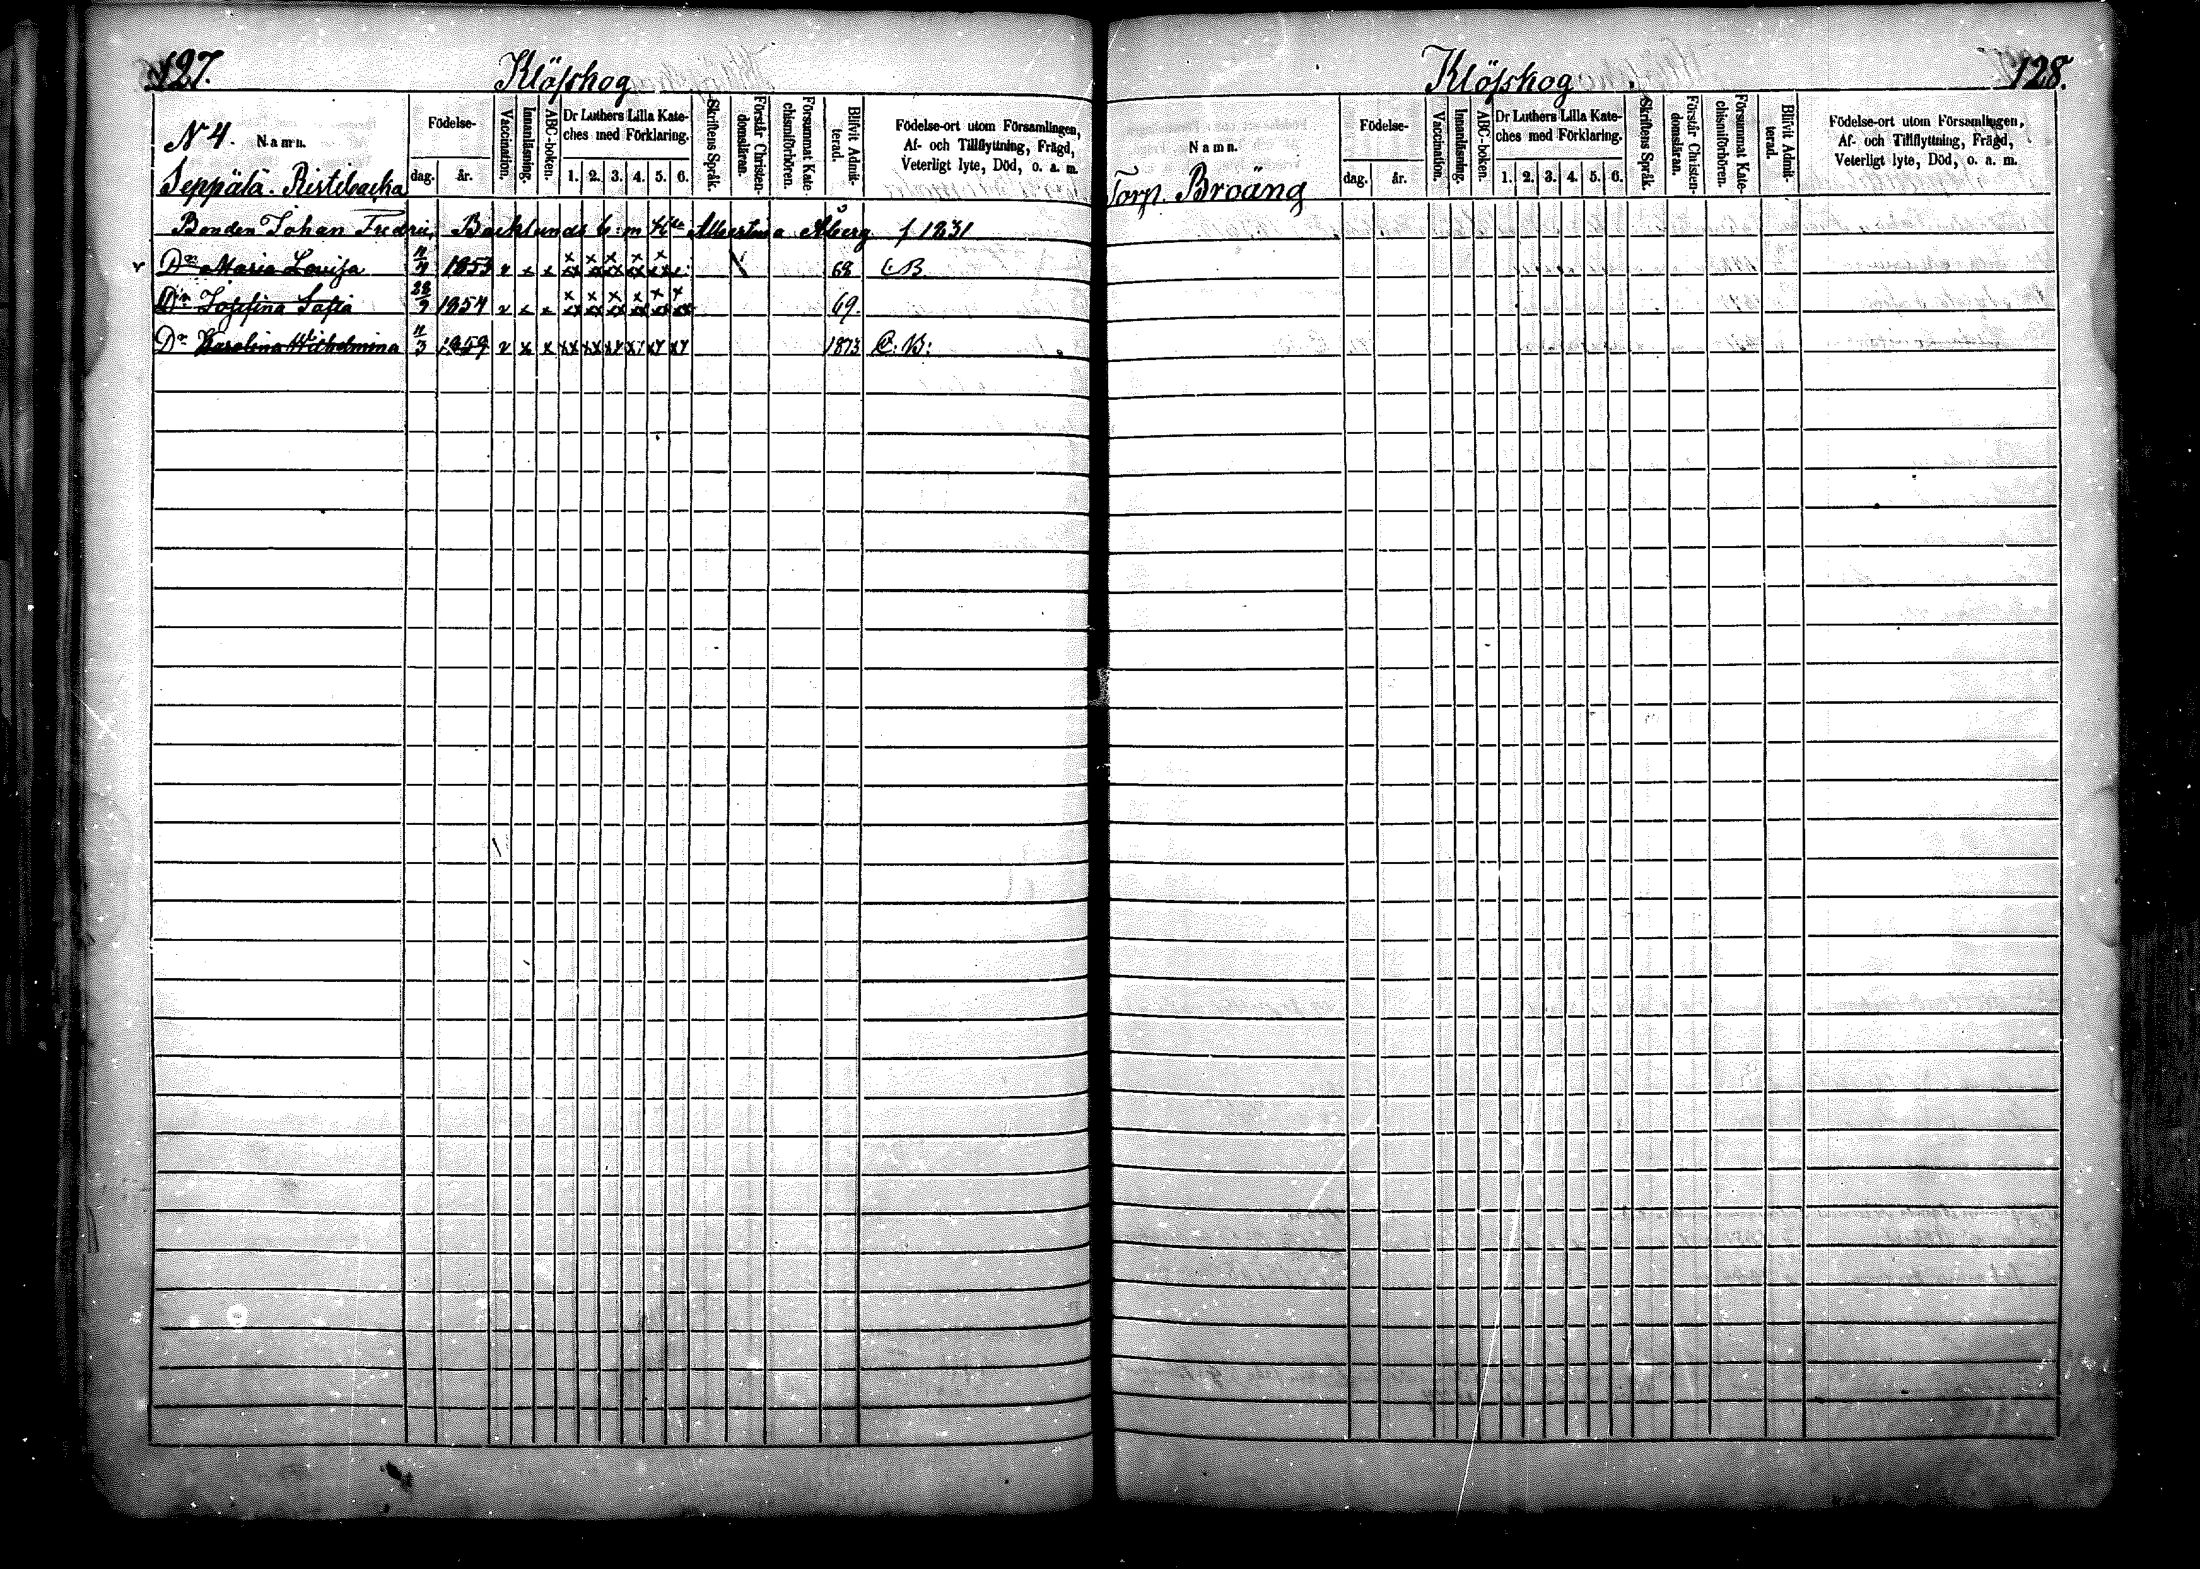 127.
Klöfskog
N 4. Namn.
Födelse-
dag. år.
Vaccination.
Innanläsning.
ABC-boken.
Dr Luthers Lilla Kate-
ches med Förklaring.
1. 2. 3. 4. 5. 6.
Skriftens Språk.
Förstår Christen-
domsläran.
Försummat Kate-
chismiförhören.
Blifvit Admit-
terad.
Födelse-ort utom Församlingen,
Af- och Tillflyttning, Frägd,
Veterligt lyte, Död, o. a. m.
Seppälä. Ristibacka
Bonden Johan Fredric Backlunds b: m Albertina Åberg f 1831
Dr Maria Lovisa 11/4 1853 v x x 68 C.B.
Dr Josefina Sofia 28/9 1857 v x x 69.
Dr Karolina Wilhelmina 11/3 1859 v x x 1873 C. B:
Klöfskog
128.
Namn.
Födelse-
dag. år.
Vaccination.
Innanläsning.
ABC-boken.
Dr Luthers Lilla Kate-
ches med Förklaring.
1. 2. 3. 4. 5. 6.
Skriftens Språk.
Förstår Christen-
domsläran.
Försummat Kate-
chismiförhören.
Blifvit Admit-
terad.
Födelse-ort utom Församlingen,
Af- och Tillflyttning, Frägd,
Veterligt lyte, Död, o. a. m.
Torp. Broäng